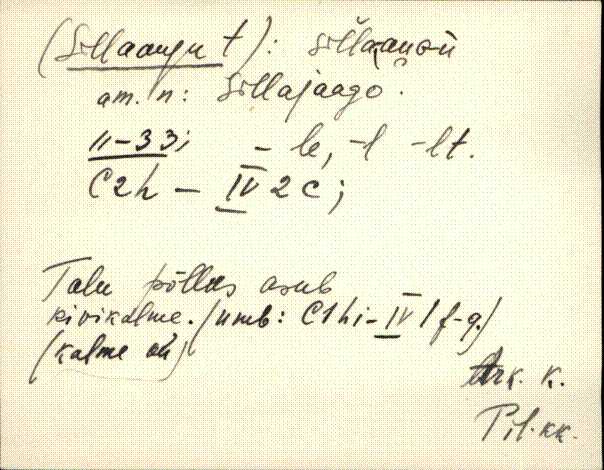 (Sillaangu t): sillaangu
am. n: Sillajaago.
11-33i -le, -l -lt.
C2h - IV 2 c;
Talu põllus asub
kivikalme. (umb: C1hi-IV 1 f-g.)
(kalme
Ark. K.
Pil. kk.